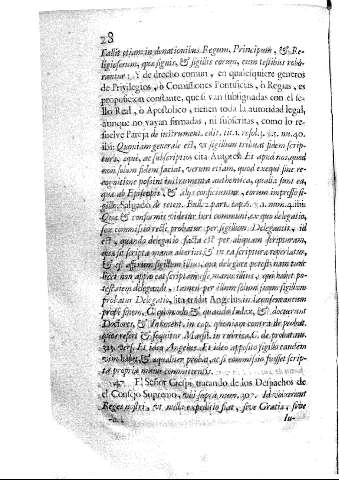 28
Fallit etiam in donationibus Regum, Principum, & Re-
ligiosorum, quæ signis, & sigillis eorum, cum testibus robo-
rantur. Y de derecho comun, en qualesquiere generos
de Privilegios, ò Comissiones Pontificias, ò Regias, es
proposicion constante, que si van subsignadas con el se-
llo Real, ò Apostolico, tienen toda la autoridad legal,
aunque no vayan firmadas, ni subscritas, como lo re-
suelve Pareja de instrument. edit. tit. 1. resol. 3. §. 1. nu. 40.
ibi: Quoniam generale est, ut sigillum tribuat fidem scriptu-
ræ, aquè, ac subscriptio: cita Et apud nos, quod
non solum fidem faciat, verum etiam, quod exequi sine re-
cognitione possint instrumenta authentica, qualia sunt ea,
quæ ab Episcopis, & aliis conficiuntur, eorum impresso si-
gillo. Salgado de reten. Bull. 2. part. cap. num. 4. ibi:
Quæ & conformis videtur iuri communi, ex quo delegatio,
seu commissio rectè probatur per sigillum Delegantis, id
est, quando delegatio facta est per aliquam scripturam,
quæ scripta manu alterius, & in ea scriptura reperitur,
& est affixum sigillum illius, qui delegare potest: nam tunc
licet non appareat scriptum esse manu illius, qui habet po-
testatem delegandi, tamen per illum solum suum sigillum
probatur Delegatio, ita tradit Angelus in
professionem, C. quomodo & quando Iudex, & docuerunt
Doctores, & Innocent. in cap. quoniam contra de probat.
quos refert & sequitur Marsil. in rubrica, C. de probat. nu.
vers. Et idea Angelus. Et ideo apposito sigillo eandem
vim habet, & æqualiter probat, ac si commissio fuisset scrip-
ta propria manu committentis.
47. El Señor Crespi, tratando de los Despachos de
el Consejo Supremo, ubi supra num. 307. Id viderunt
Reges nostri, ut nulla expeditio fiat, sive Gratiæ, sive
Iu-